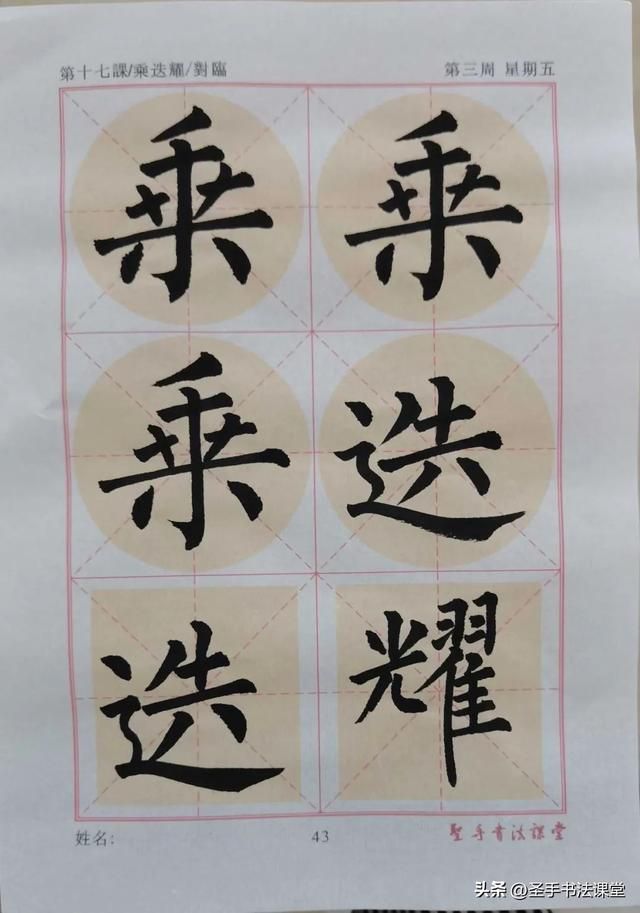 第十七課/乘迭耀/對臨 第三周 星期五
乘 乘
乘 迭
迭 耀
姓名: 43 聖手書法課堂
头条 @圣手书法课堂